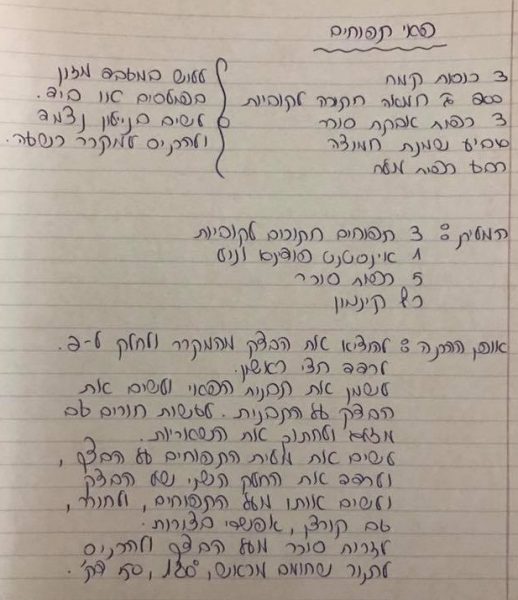 פאי תפוחים
3 כוסות קמח
200 ג חמאה חתוכה לקוביות
3 כפות אבקת סוכר
גביע שמנת חמוצה
רבע כפית מלח
ללוש במעבד מזון
בפולסים או ביד.
לשים בניילון נצמד
ולהכניס למקרר כשעה.
המלית: 3 תפוחים חתוכים לקוביות
1 אינסטנט פודינג וניל
5 כפות סוכר
כף קינמון
אופן ההכנה: להוציא את הבצק מהמקרר ולחלק ל-2.
לרדד חצי ראשון.
לשמן את תבנית הפאי ולשים את
הבצק על התבנית. לעשות חורים עם
מזלג ולחתוך את השאריות.
לשים את מלית התפוחים על הבצק,
ולרדד את החלק השני של הבצק
ולשים אותו מעל התפוחים, ולחורר,
עם קורצן, אפשר בצורות.
לזרות סוכר מעל הבצק ולהכניס
לתנור שחומם מראש, 180°, 50 דק'.